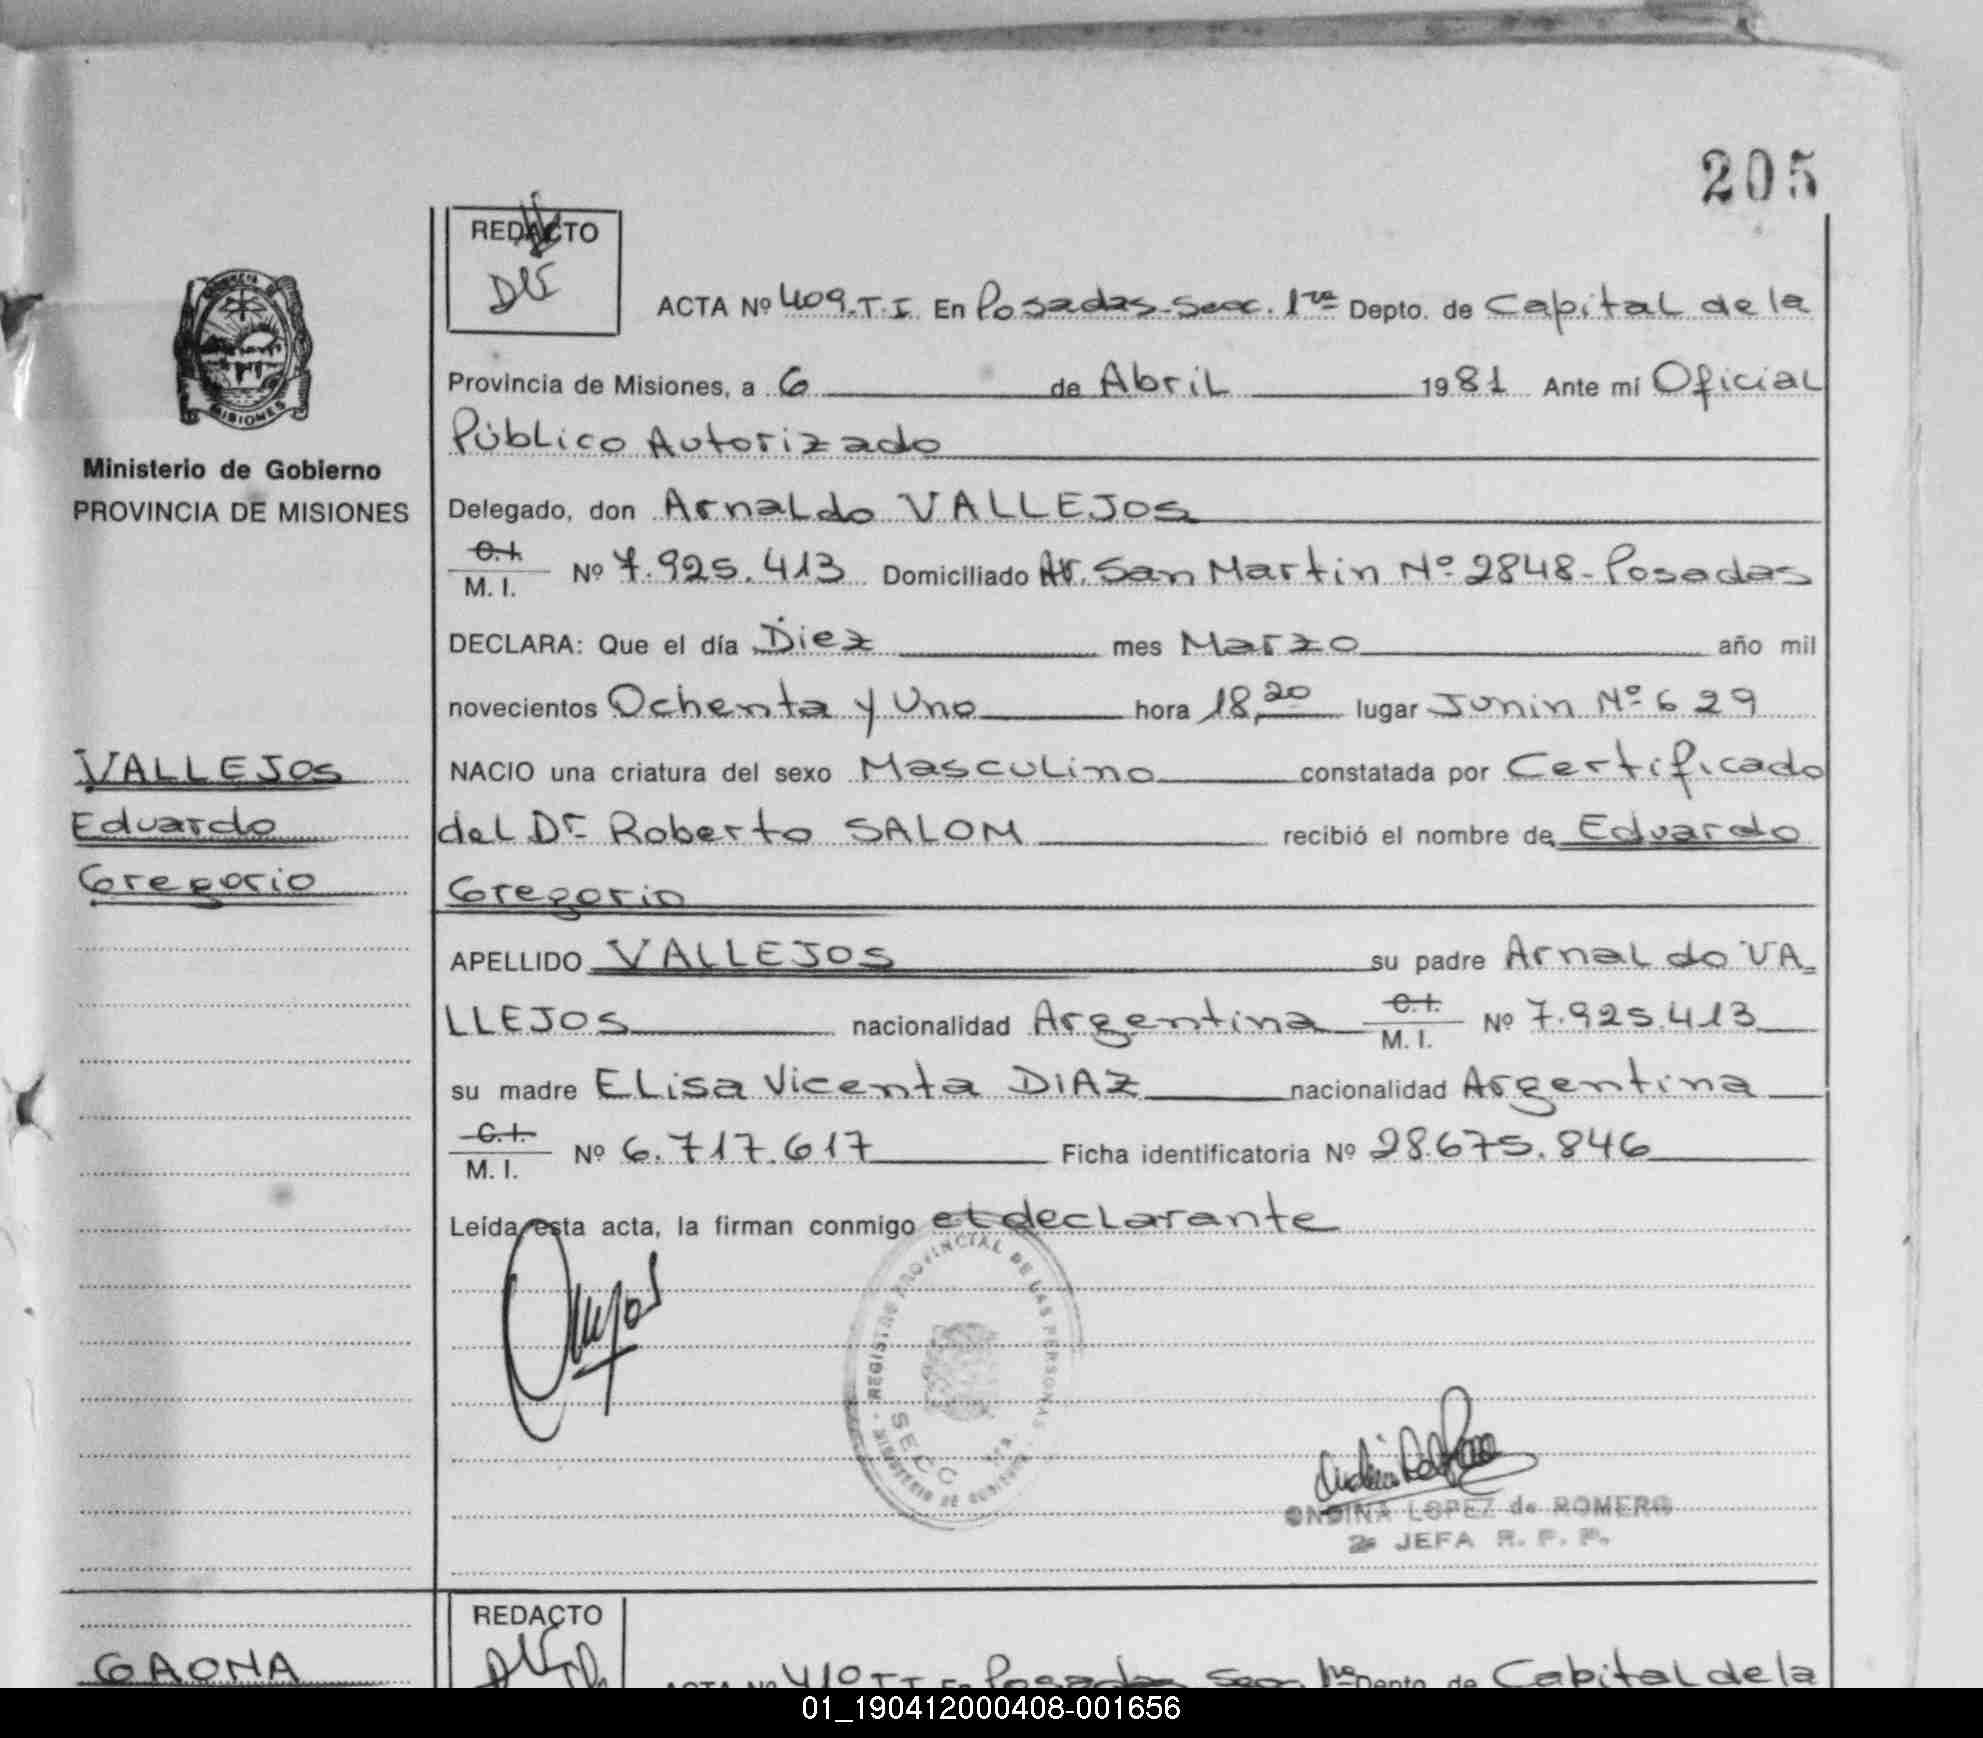 205
REDACTO
ACTA Nº 409.T.I. En Posadas-Secc. 1ra Depto. de Capital de la
Provincia de Misiones, a 6 de Abril 1981 Ante mi Oficial
Público Autorizado
Ministerio de Gobierno
PROVINCIA DE MISIONES
Delegado, don Arnaldo VALLEJOS
C.I. M.I. Nº 7.925.413 Domiciliado Av. San Martin Nº 2848-Posadas
DECLARA: Que el día Diez mes Marzo año mil
novecientos Ochenta y Uno hora 18,20 lugar Junin Nº 629
VALLEJOS
Eduardo
Gregorio
NACIO una criatura del sexo Masculino constatada por Certificado
del Dr. Roberto SALOM recibió el nombre de Eduardo
Gregorio
APELLIDO VALLEJOS su padre Arnaldo VA-
LLEJOS nacionalidad Argentina C.I. M.I. Nº 7.925.413
su madre Elisa Vicenta DIAZ nacionalidad Argentina
C.I. M.I. Nº 6.717.617 Ficha identificatoria Nº 28.675.846
Leída esta acta, la firman conmigo el declarante
REGISTRO PROVINCIAL DE LAS PERSONAS
SECC
MINISTERIO DE GOBIERNO
ONDINA LOPEZ de ROMERO
2a JEFA R. P. P.
REDACTO
GAONA
ACTA Nº 410 T I En Posadas Secc. 1ra Depto. de Capital de la
01_190412000408-001656